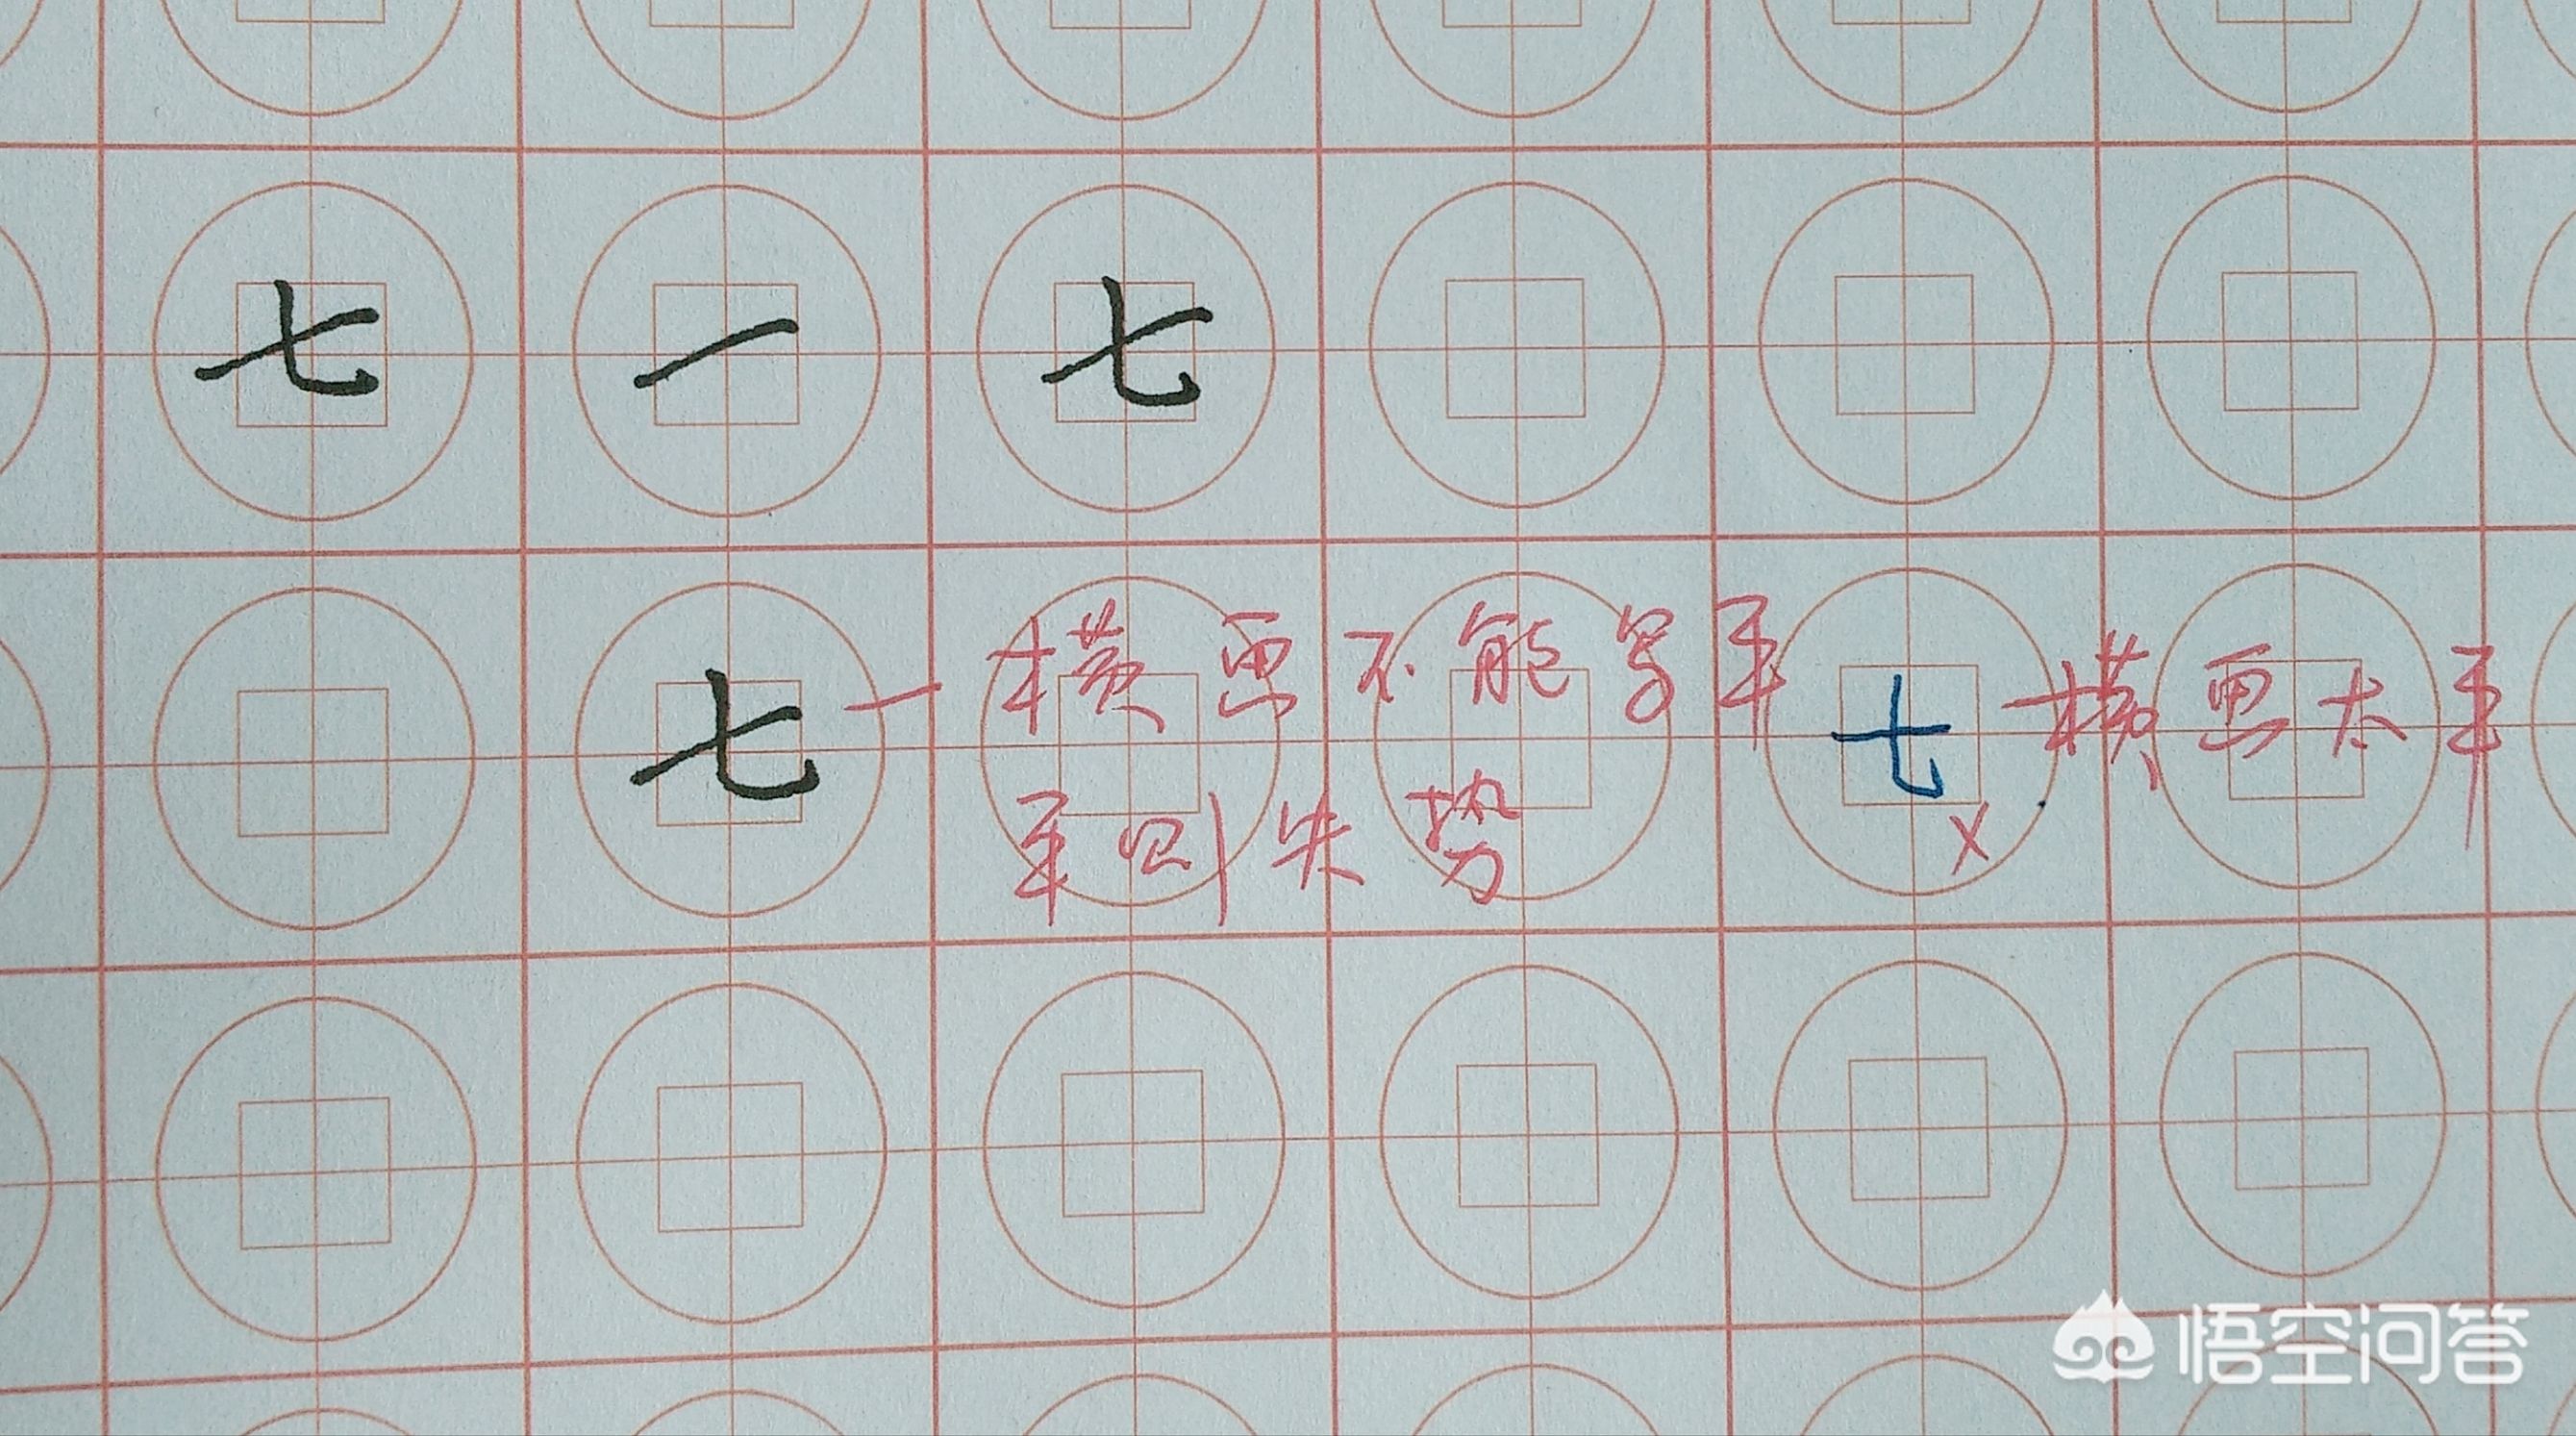 七 一 七
七 一横画不能写平 七 一横画太平
平则失势 ×
悟空问答